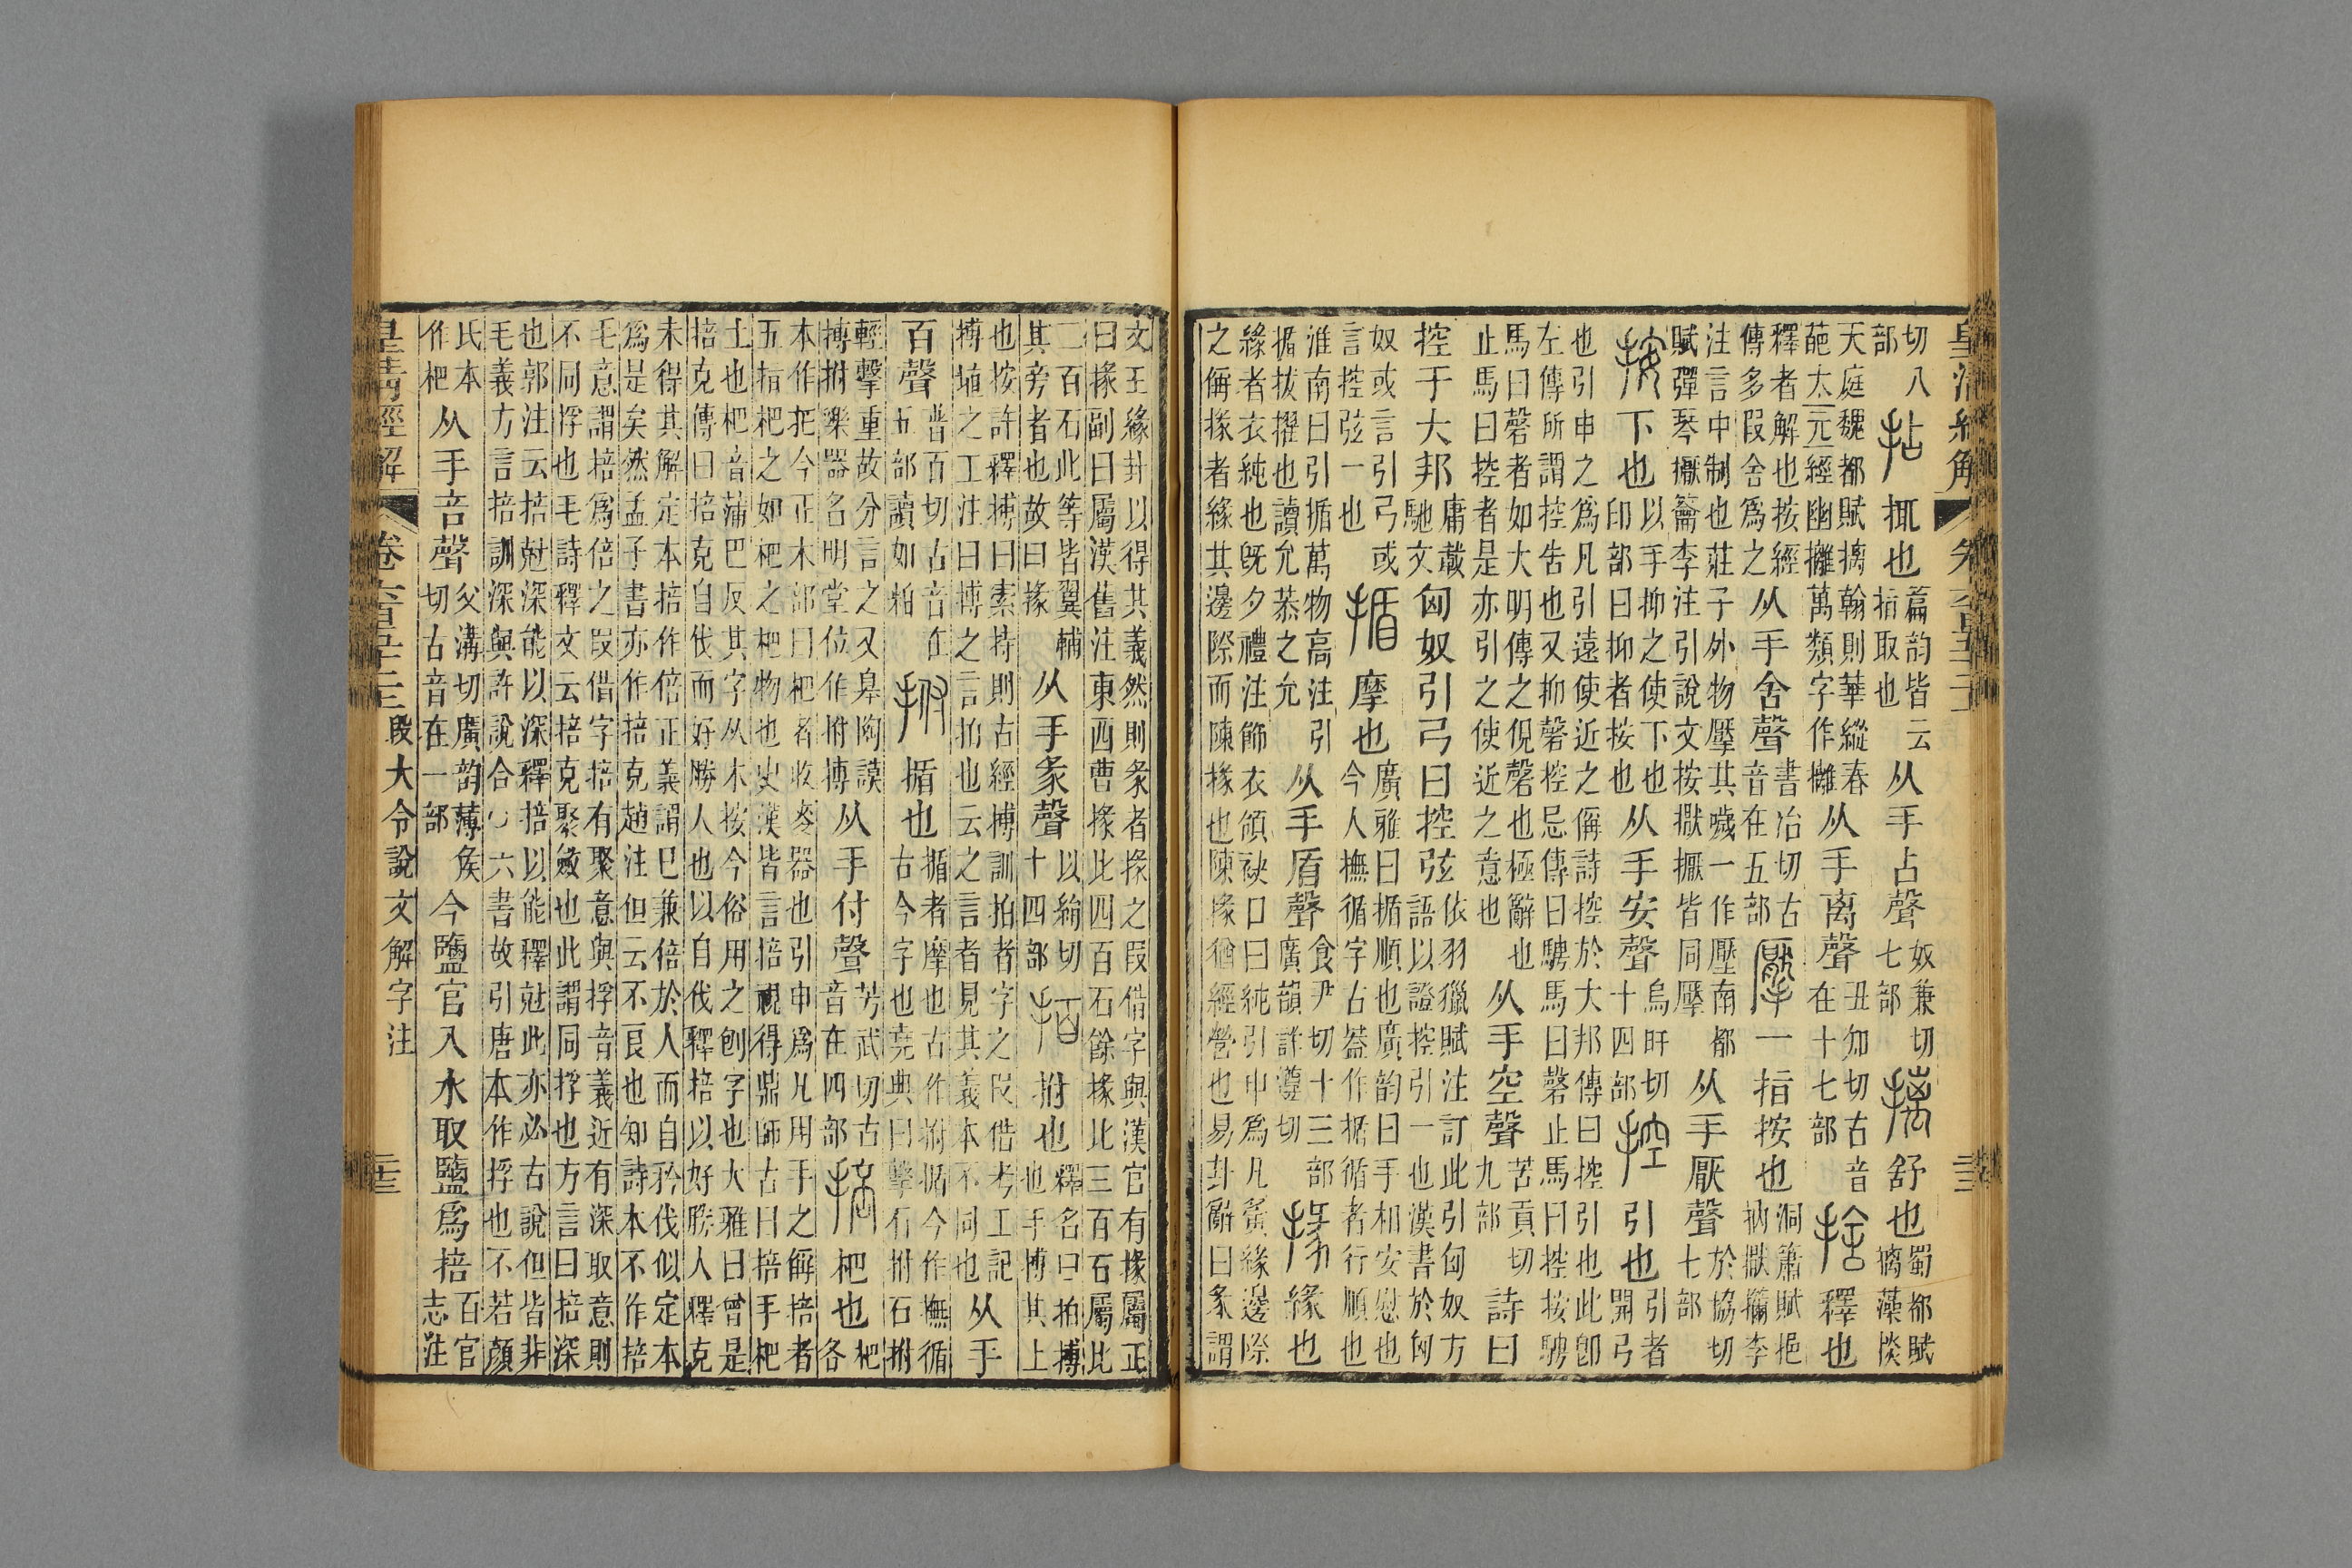 切八部拈㧗也篇韵皆云指取也从手占聲奴兼切七部摛舒也蜀都賦摛藻掞
天庭魏都賦摛翰則華縱春葩太元經幽攡萬類字作攡从手离聲丑知切古音在十七部捨釋也
釋者解也按經傳多叚舍爲之从手舍聲書冶切古音在五部擪一指按也洞簫賦挹抐擫李
注言中制也莊子外物壓其顪一作壓南都賦彈琴擫籥李注引說文按擫擫皆同擪从手厭聲於協切七部
按下也以手抑之使下也印部曰抑者按也从手安聲烏旰切十四部控引也引者開弓
也引申之爲凡引遠使近之偁詩控於大邦傳曰控引也此卽左傳所謂控告也又抑磬控忌傳曰騁馬曰磬止馬曰控按騁
馬曰磬者如大明傳之俔磬也極辭也止馬曰控者是亦引之使近之意也从手空聲苦貢切九部詩曰
控于大邦庸葴馳文匈奴引弓曰控弦依羽獵賦注訂此引匈奴方語以證控引一也漢書於匈
奴或言引弓或言控弦一也揗摩也廣雅曰揗順也廣韵曰手相安慰也今人撫循字古葢作揗循者行順也
淮南曰引揗萬物高注引揗拔擢也讀允恭之允从手盾聲食尹切十三部廣韻詳遵切掾緣也
緣者衣純也旣夕禮注飾衣領袂口曰純引申爲凡夤緣邊際之偁掾者緣其邊際而陳掾也陳掾猶經營也易卦辭曰彖謂
文王緣卦以得其義然則彖者掾之叚借字與漢官有掾屬正曰掾副曰屬漢舊注東西曹掾比四百石餘掾比三百石屬比
二百石此等皆翼輔其旁者也故曰掾从手彖聲以絹切十四部拍拊也釋名曰拍搏也手搏其上
也按許釋搏曰索持則古經搏訓拍者字之叚借考工記搏埴之工注曰搏之言拍也云之言者見其義本不同也从手
百聲普百切古音在五部讀如粕拊揗也揗者摩也古作拊揗今作撫循古今字也堯典曰擊石拊石拊
輕擊重故分言之又皋陶謨搏拊樂器名明堂位作拊搏从手付聲芳武切古音在四部掊杷也杷各
本作把今正木部曰杷者收麥器也引申爲凡用手之偁掊者五指杷之如杷之杷物也史漢皆言掊視得鼎師古曰掊手杷
土也杷音蒲巴反其字从木按今俗用之刨字也大雅曰曾是掊克傳曰掊克自伐而好勝人也以自伐釋掊以好勝人釋克
未得其解定本掊作倍正義謂己兼倍於人而自矜伐似定本爲是矣然孟子書亦作掊克趙注但云不良也知詩本不作掊
毛意謂掊爲倍之叚借字掊有聚意與捊音義近有深取意則不同捊也毛詩釋文云掊克聚斂也此謂同捊也方言曰掊深
也郭注云掊尅深能以深釋掊以能釋尅此亦必古說但皆非毛義方言掊訓深與許說合六書故引唐本作捊也不若顏
氏本作杷从手咅聲父溝切廣韵薄侯切古音在一部今鹽官入水取鹽爲掊百官志注
皇清經解 卷六百五十二 段大令說文解字注 二十三